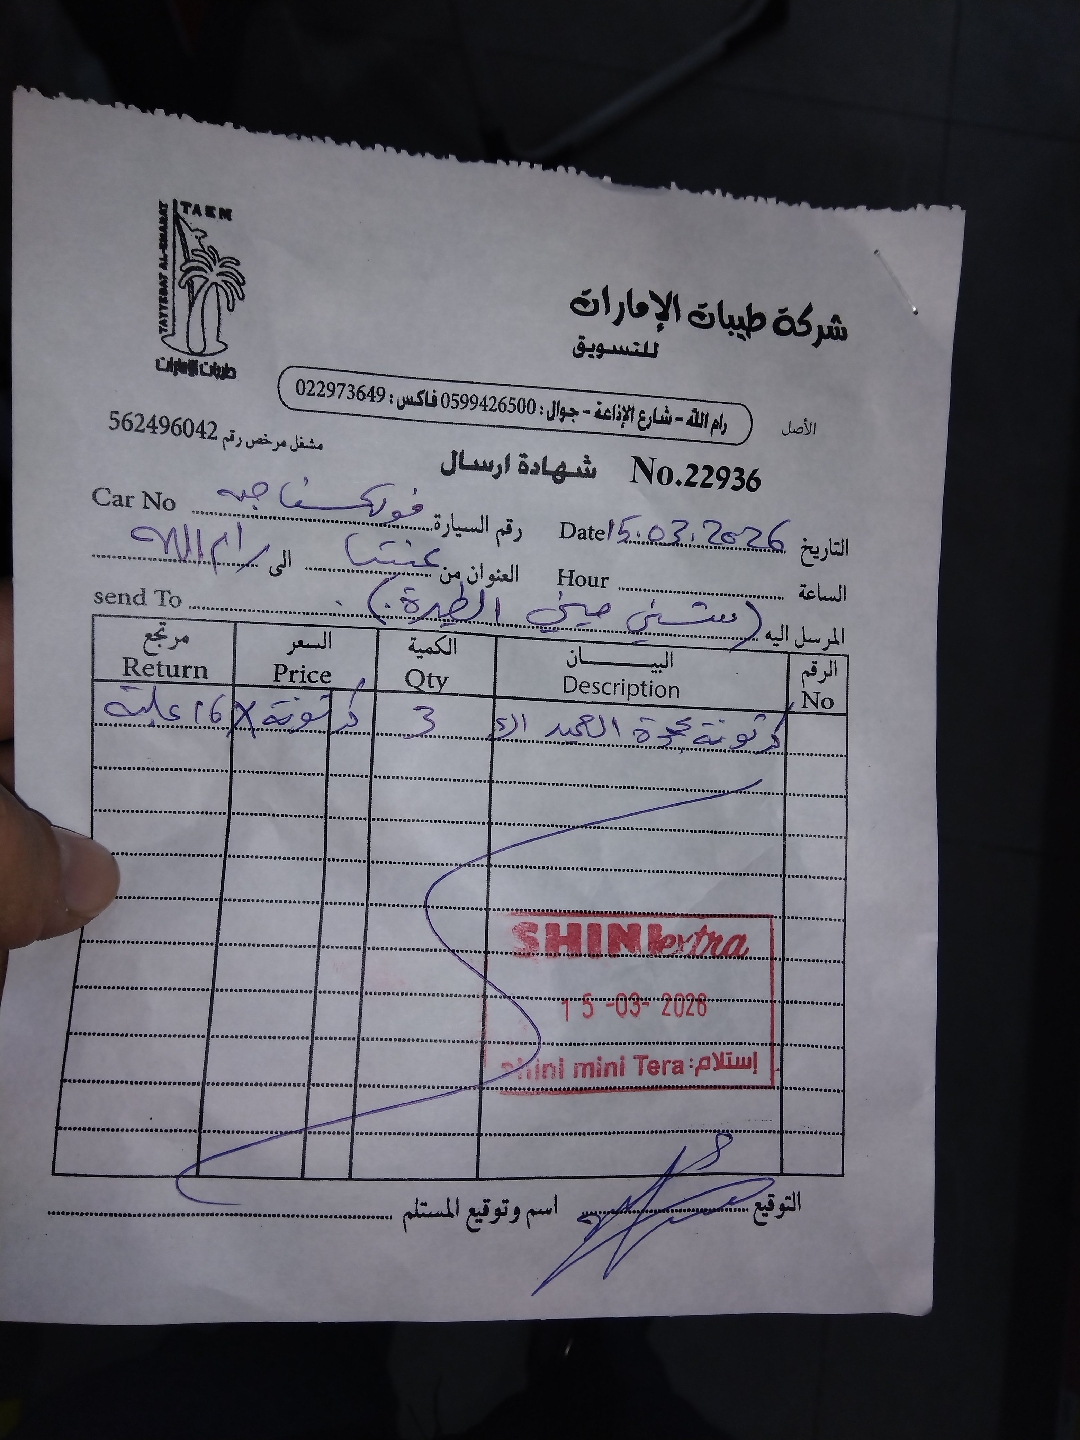 TAEM
TAYYEBAT AL-EMARAT
طيبات الإمارات
شركة طيبات الإمارات
للتسويق
رام الله - شارع الإذاعة - جوال : 0599426500 فاكس : 022973649
الأصل
مشغل مرخص رقم 562496042
شهادة ارسال No.22936
التاريخ 15.03.2026 Date رقم السيارة Car No
الساعة Hour العنوان من عنبتا الى رام الله
المرسل اليه (شني ميني الطيرة) send To
الرقم البيـــــان الكمية السعر مرتجع
No Description Qty Price Return
كرتونة عجوة العميد 3 كرتونة X 16 علبة
SHINI extra
15 -03- 2026
إستلام: shini mini Tera
التوقيع اسم وتوقيع المستلم